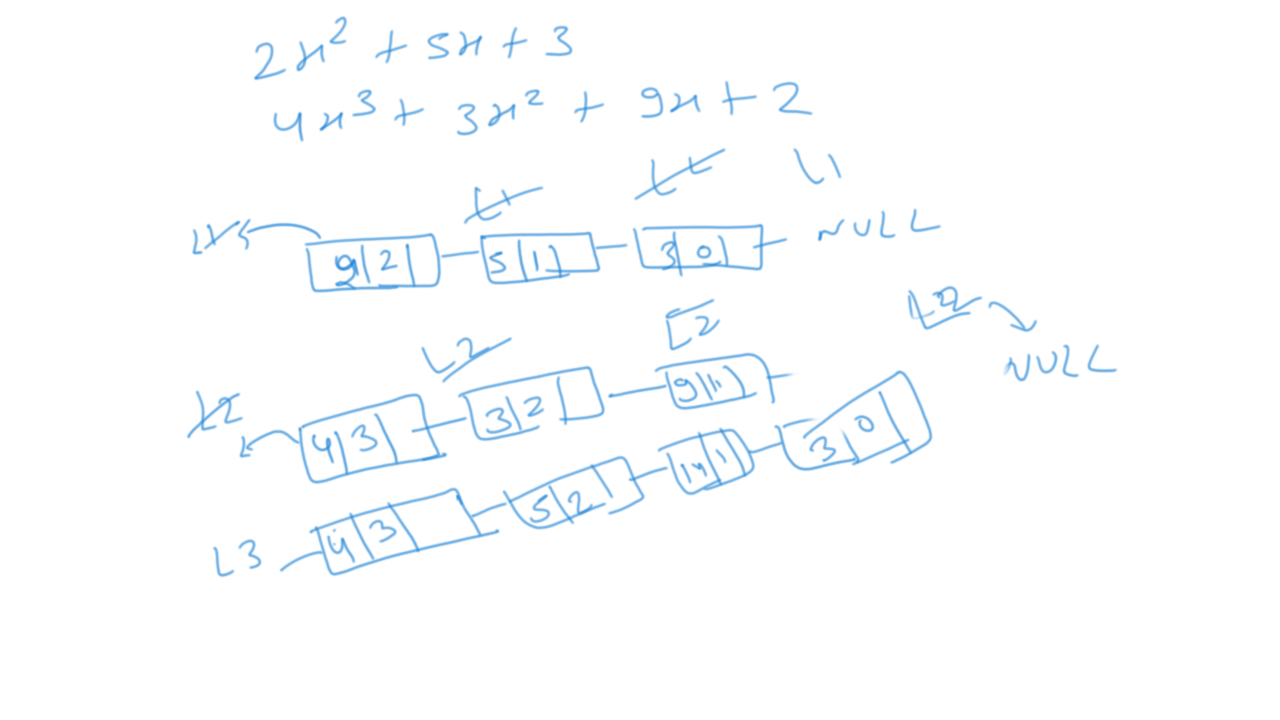 2x² + 5x + 3
4x³ + 3x² + 9x + 2
L1 L1 L1
L1 9|2| 5|1| 3|0| NULL
L2 L2 L2
L2 4|3| 3|2| 9|1| NULL
L3 4|3| 5|2| 14|1| 3|0|